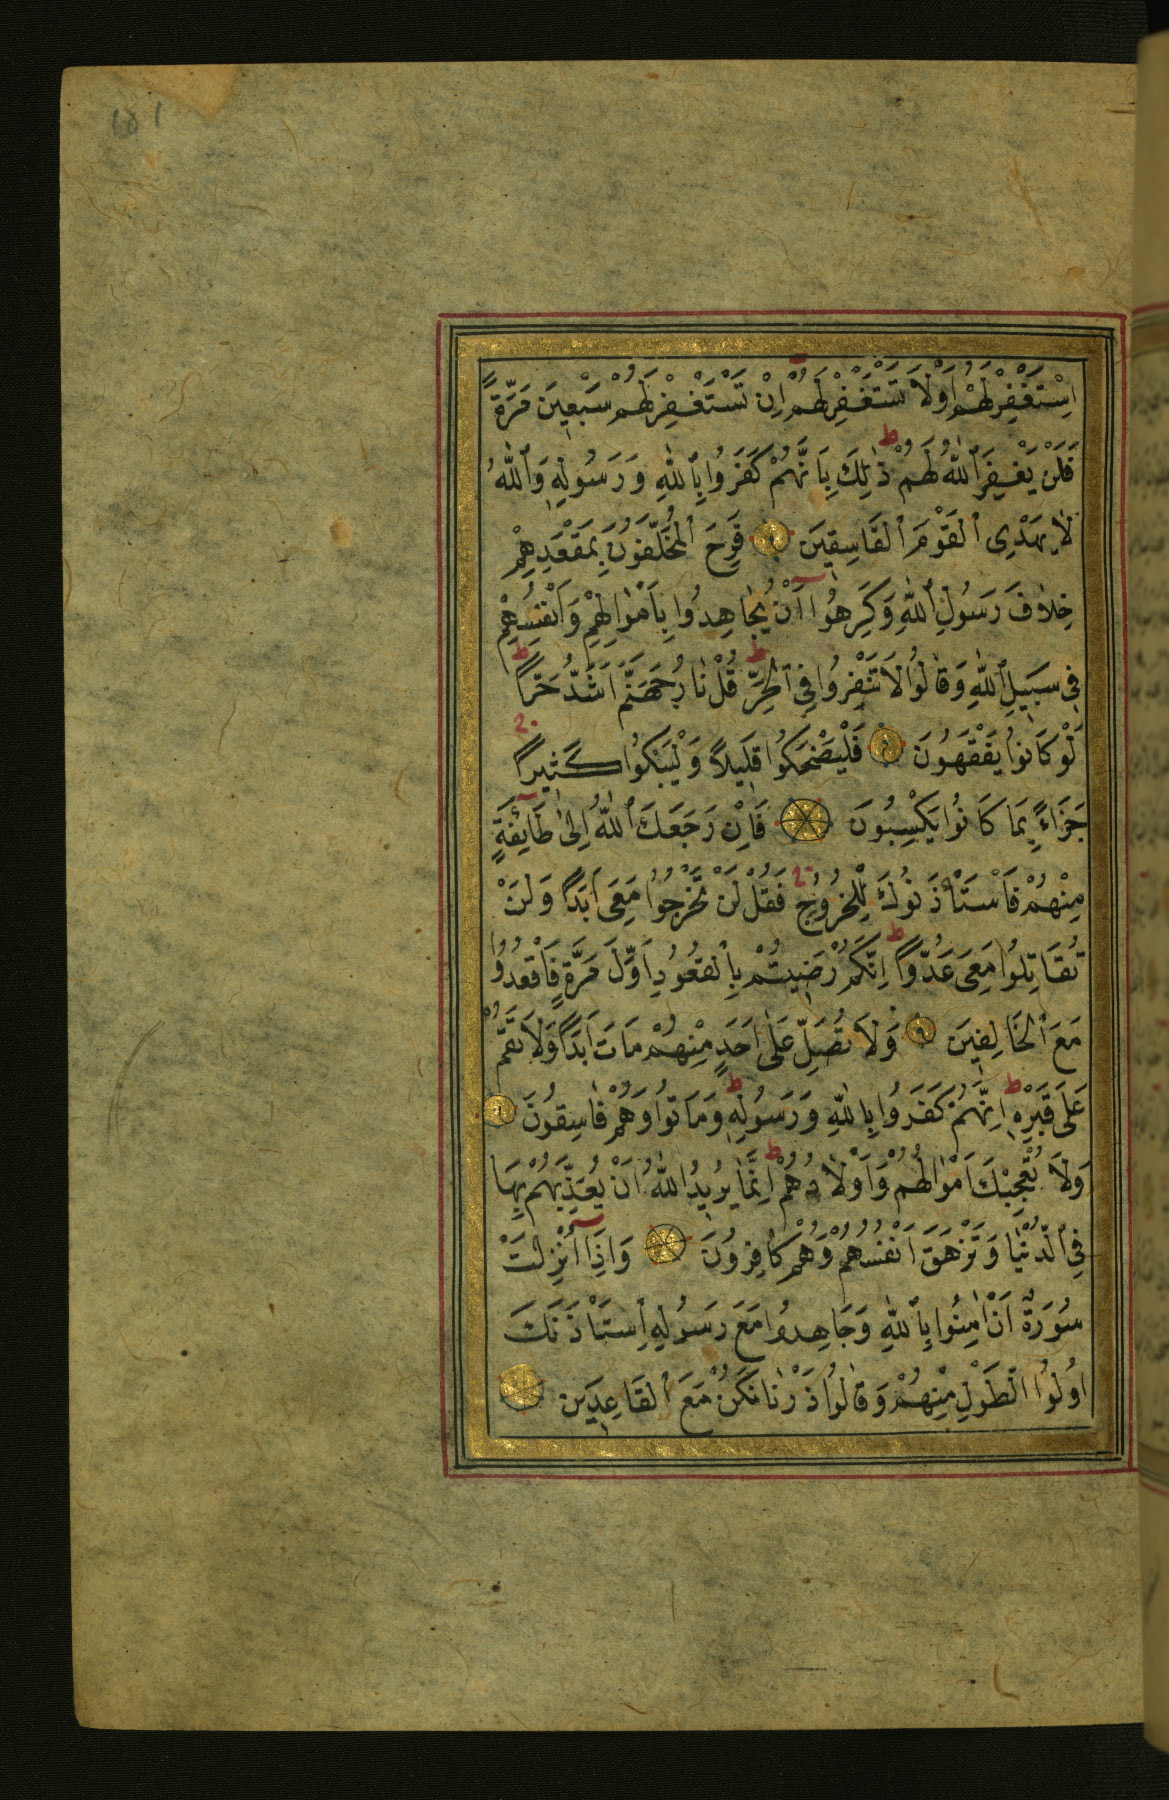 اِسْتَغْفِرْ لَهُمْ اَوْ لَا تَسْتَغْفِرْ لَهُمْ اِنْ تَسْتَغْفِرْ لَهُمْ سَبْعِينَ مَرَّةً
فَلَنْ يَغْفِرَ ٱللّٰهُ لَهُمْ ط ذٰلِكَ بِاَنَّهُمْ كَفَرُوا بِٱللّٰهِ وَرَسُولِهِ وَٱللّٰهُ
لَا يَهْدِى ٱلْقَوْمَ ٱلْفَاسِقِينَ فَرِحَ ٱلْمُخَلَّفُونَ بِمَقْعَدِهِمْ
خِلَافَ رَسُولِ ٱللّٰهِ وَكَرِهُوا اَنْ يُجَاهِدُوا بِاَمْوٰالِهِمْ وَاَنْفُسِهِمْ
فِى سَبِيلِ ٱللّٰهِ وَقَالُوا لَا تَنْفِرُوا فِى ٱلْحَرِّ ط قُلْ نَارُ جَهَنَّمَ اَشَدُّ حَرًّا ط
لَوْ كَانُوا يَفْقَهُونَ فَلْيَضْحَكُوا قَلِيلًا وَلْيَبْكُوا كَثِيرًا
جَزَاءً بِمَا كَانُوا يَكْسِبُونَ فَاِنْ رَجَعَكَ ٱللّٰهُ اِلٰى طَائِفَةٍ
مِنْهُمْ فَاسْتَأْذَنُوكَ لِلْخُرُوجِ فَقُلْ لَنْ تَخْرُجُوا مَعِىَ اَبَدًا وَلَنْ
تُقَاتِلُوا مَعِىَ عَدُوًّا ط اِنَّكُمْ رَضِيتُمْ بِٱلْقُعُودِ اَوَّلَ مَرَّةٍ فَاقْعُدُوا
مَعَ ٱلْخَالِفِينَ وَلَا تُصَلِّ عَلٰى اَحَدٍ مِنْهُمْ مَاتَ اَبَدًا وَلَا تَقُمْ
عَلٰى قَبْرِهِ ط اِنَّهُمْ كَفَرُوا بِٱللّٰهِ وَرَسُولِهِ ط وَمَاتُوا وَهُمْ فَاسِقُونَ
وَلَا تُعْجِبْكَ اَمْوٰالُهُمْ وَاَوْلَادُهُمْ ط اِنَّمَا يُرِيدُ ٱللّٰهُ اَنْ يُعَذِّبَهُمْ بِهَا
فِى ٱلدُّنْيَا وَتَزْهَقَ اَنْفُسُهُمْ وَهُمْ كَافِرُونَ وَاِذَا اُنْزِلَتْ
سُورَةٌ اَنْ اٰمِنُوا بِٱللّٰهِ وَجَاهِدُوا مَعَ رَسُولِهِ اِسْتَأْذَنَكَ
اُولُوا ٱلطَّوْلِ مِنْهُمْ وَقَالُوا ذَرْنَا نَكُنْ مَعَ ٱلْقَاعِدِينَ